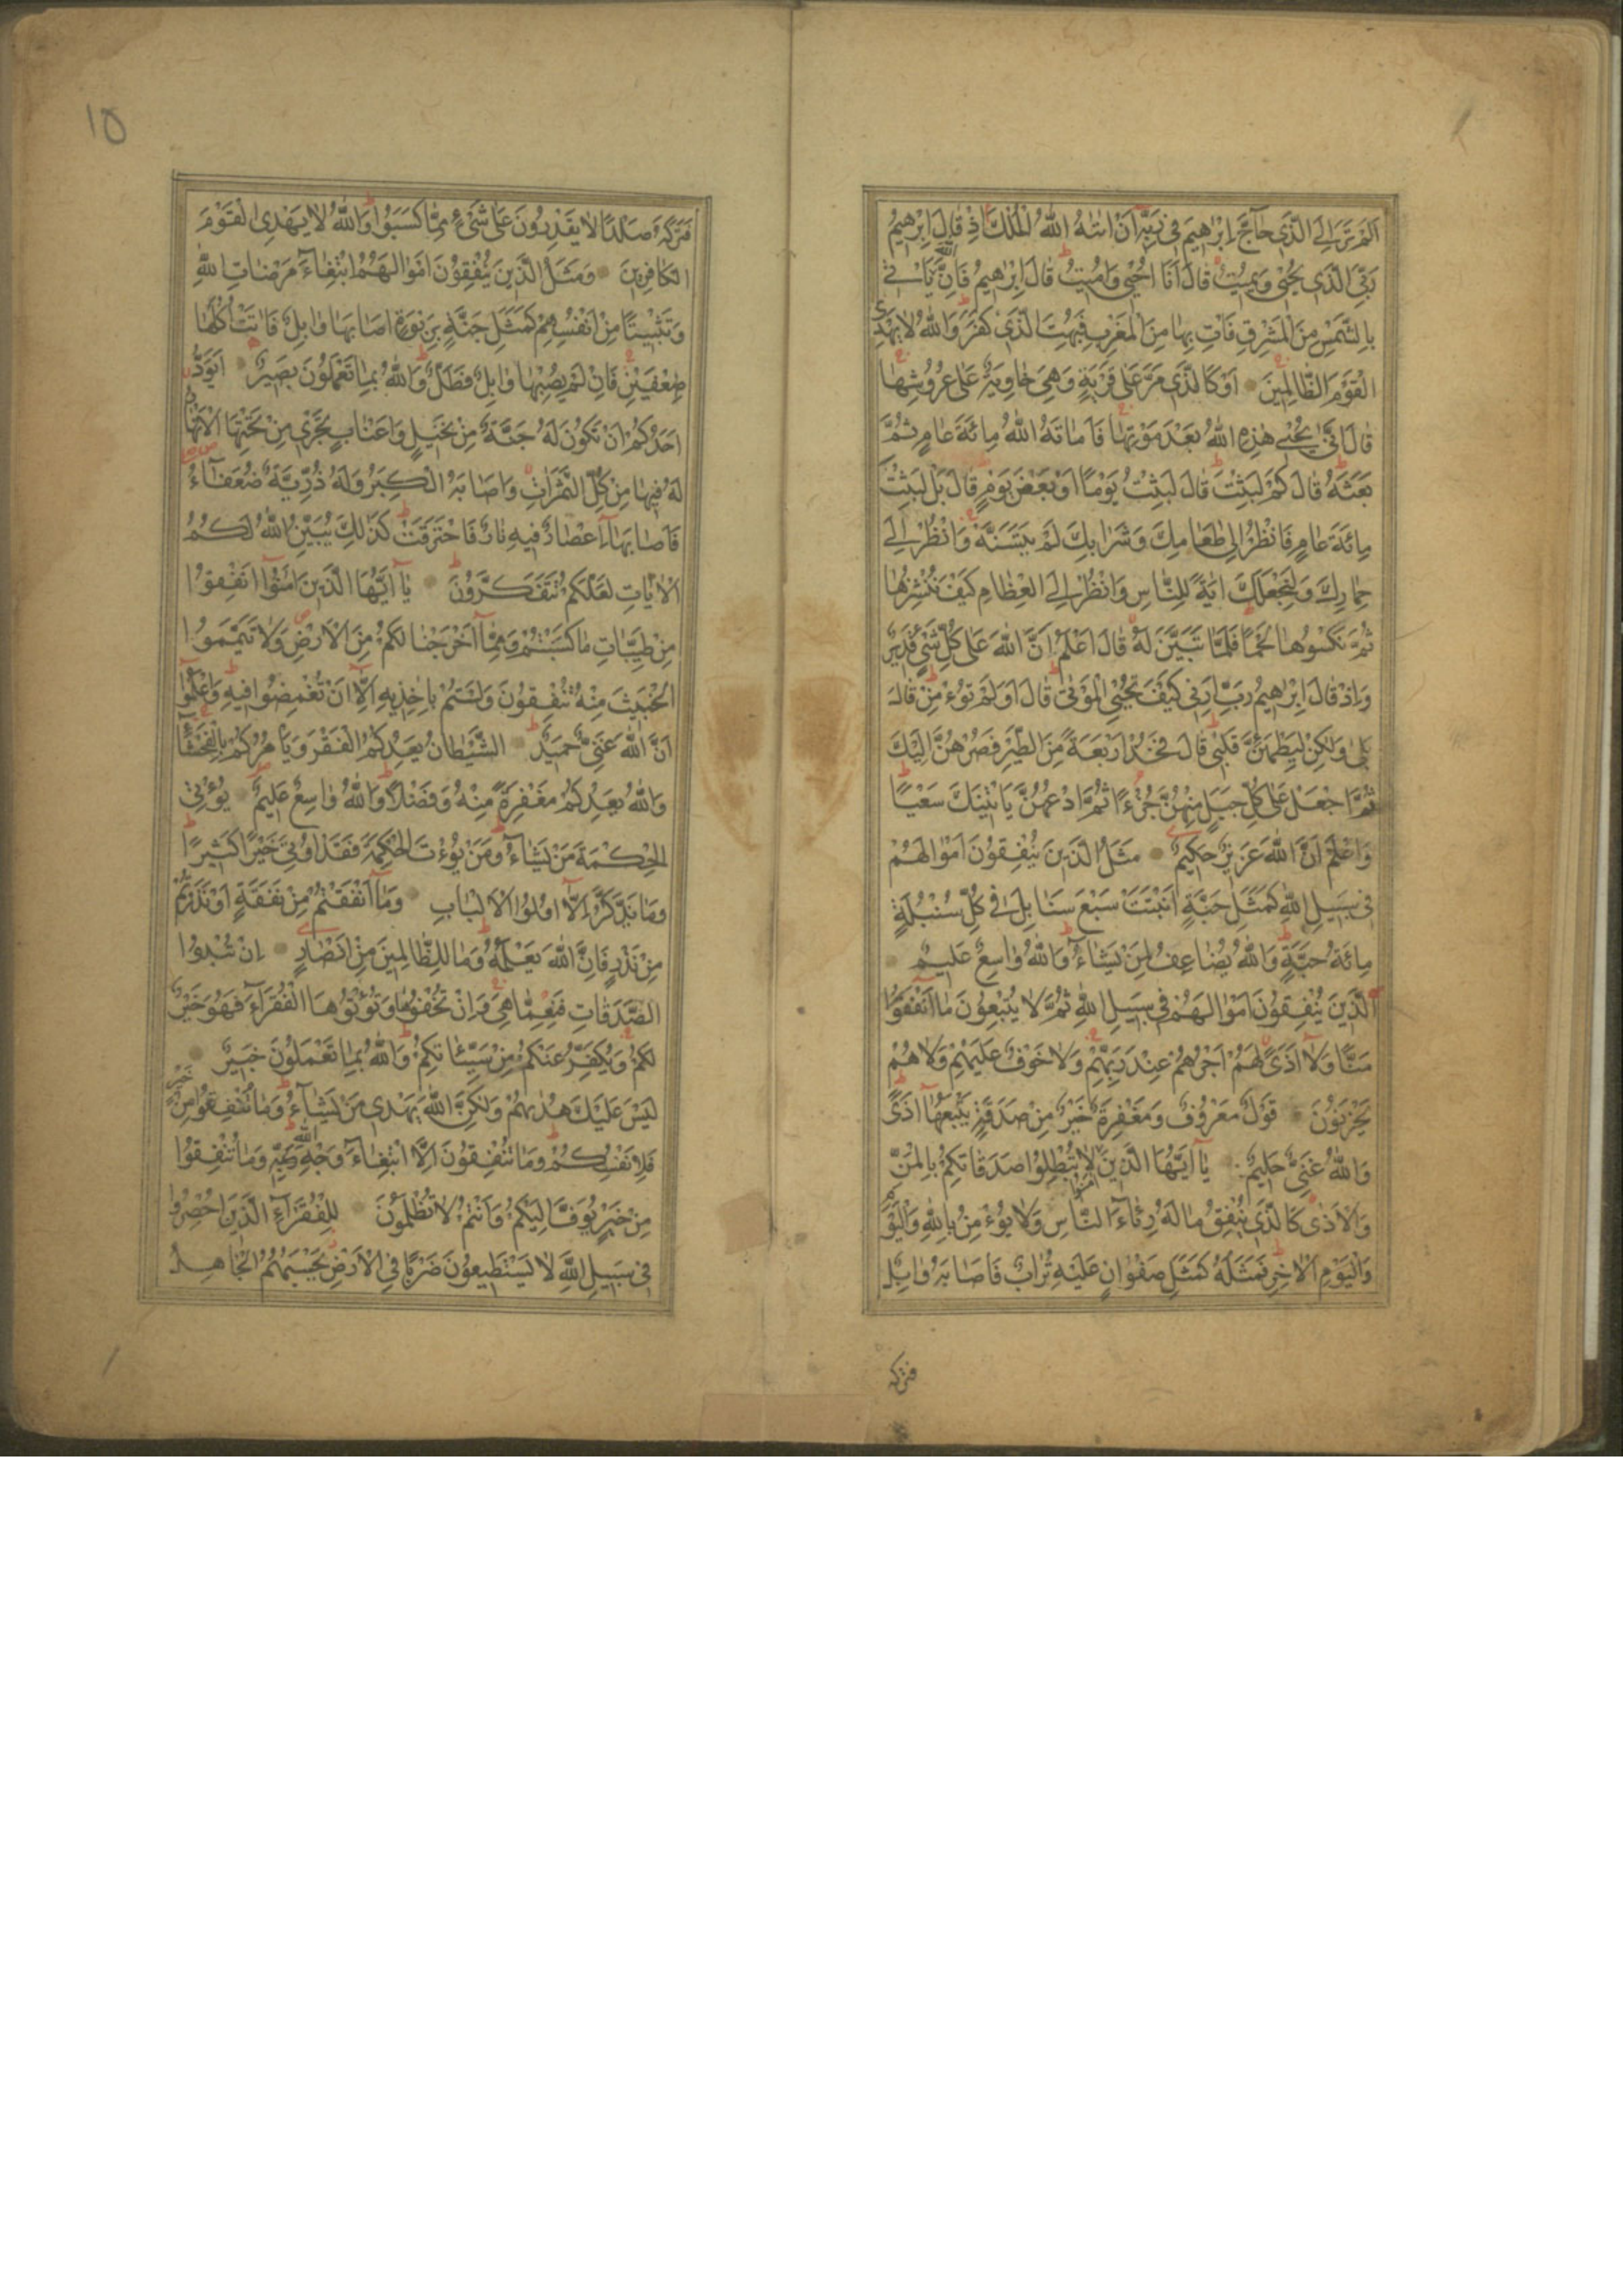 اَلَمْ تَرَ اِلَى الَّذٖى حَاۤجَّ اِبْرٰهٖيمَ فٖى رَبِّهٖۤ اَنْ اٰتٰيهُ اللّٰهُ الْمُلْكَ اِذْ قَالَ اِبْرٰهٖيمُ
رَبِّىَ الَّذٖى يُحْيٖى وَيُمٖيتُ قَالَ اَنَا اُحْيٖى وَاُمٖيتُ قَالَ اِبْرٰهٖيمُ فَاِنَّ اللّٰهَ يَاْتٖى
بِالشَّمْسِ مِنَ الْمَشْرِقِ فَاْتِ بِهَا مِنَ الْمَغْرِبِ فَبُهِتَ الَّذٖى كَفَرَ وَاللّٰهُ لَا يَهْدِى
الْقَوْمَ الظَّالِمٖينَ اَوْ كَالَّذٖى مَرَّ عَلٰى قَرْيَةٍ وَهِىَ خَاوِيَةٌ عَلٰى عُرُوشِهَا
قَالَ اَنّٰى يُحْيٖى هٰذِهِ اللّٰهُ بَعْدَ مَوْتِهَا فَاَمَاتَهُ اللّٰهُ مِائَةَ عَامٍ ثُمَّ
بَعَثَهُ قَالَ كَمْ لَبِثْتَ قَالَ لَبِثْتُ يَوْمًا اَوْ بَعْضَ يَوْمٍ قَالَ بَلْ لَبِثْتَ
مِائَةَ عَامٍ فَانْظُرْ اِلٰى طَعَامِكَ وَشَرَابِكَ لَمْ يَتَسَنَّهْ وَانْظُرْ اِلٰى
حِمَارِكَ وَلِنَجْعَلَكَ اٰيَةً لِلنَّاسِ وَانْظُرْ اِلَى الْعِظَامِ كَيْفَ نُنْشِزُهَا
ثُمَّ نَكْسُوهَا لَحْمًا فَلَمَّا تَبَيَّنَ لَهُ قَالَ اَعْلَمُ اَنَّ اللّٰهَ عَلٰى كُلِّ شَىْءٍ قَدٖيرٌ
وَاِذْ قَالَ اِبْرٰهٖيمُ رَبِّ اَرِنٖى كَيْفَ تُحْيِى الْمَوْتٰى قَالَ اَوَلَمْ تُؤْمِنْ قَالَ
بَلٰى وَلٰكِنْ لِيَطْمَئِنَّ قَلْبٖى قَالَ فَخُذْ اَرْبَعَةً مِنَ الطَّيْرِ فَصُرْهُنَّ اِلَيْكَ
ثُمَّ اجْعَلْ عَلٰى كُلِّ جَبَلٍ مِنْهُنَّ جُزْءًا ثُمَّ ادْعُهُنَّ يَاْتٖينَكَ سَعْيًا
وَاعْلَمْ اَنَّ اللّٰهَ عَزٖيزٌ حَكٖيمٌ مَثَلُ الَّذٖينَ يُنْفِقُونَ اَمْوَالَهُمْ
فٖى سَبٖيلِ اللّٰهِ كَمَثَلِ حَبَّةٍ اَنْبَتَتْ سَبْعَ سَنَابِلَ فٖى كُلِّ سُنْبُلَةٍ
مِائَةُ حَبَّةٍ وَاللّٰهُ يُضَاعِفُ لِمَنْ يَشَاءُ وَاللّٰهُ وَاسِعٌ عَلٖيمٌ
اَلَّذٖينَ يُنْفِقُونَ اَمْوَالَهُمْ فٖى سَبٖيلِ اللّٰهِ ثُمَّ لَا يُتْبِعُونَ مَا اَنْفَقُوا
مَنًّا وَلَا اَذًى لَهُمْ اَجْرُهُمْ عِنْدَ رَبِّهِمْ وَلَا خَوْفٌ عَلَيْهِمْ وَلَا هُمْ
يَحْزَنُونَ قَوْلٌ مَعْرُوفٌ وَمَغْفِرَةٌ خَيْرٌ مِنْ صَدَقَةٍ يَتْبَعُهَا اَذًى
وَاللّٰهُ غَنِىٌّ حَلٖيمٌ يَا اَيُّهَا الَّذٖينَ اٰمَنُوا لَا تُبْطِلُوا صَدَقَاتِكُمْ بِالْمَنِّ
وَالْاَذٰى كَالَّذٖى يُنْفِقُ مَالَهُ رِئَاءَ النَّاسِ وَلَا يُؤْمِنُ بِاللّٰهِ وَالْيَوْ
وَالْيَوْمِ الْاٰخِرِ فَمَثَلُهُ كَمَثَلِ صَفْوَانٍ عَلَيْهِ تُرَابٌ فَاَصَابَهُ وَابِلٌ
فتركه
١٥
فَتَرَكَهُ صَلْدًا لَا يَقْدِرُونَ عَلٰى شَىْءٍ مِمَّا كَسَبُوا وَاللّٰهُ لَا يَهْدِى الْقَوْمَ
الْكَافِرٖينَ وَمَثَلُ الَّذٖينَ يُنْفِقُونَ اَمْوَالَهُمُ ابْتِغَاءَ مَرْضَاتِ اللّٰهِ
وَتَثْبٖيتًا مِنْ اَنْفُسِهِمْ كَمَثَلِ جَنَّةٍ بِرَبْوَةٍ اَصَابَهَا وَابِلٌ فَاٰتَتْ اُكُلَهَا
ضِعْفَيْنِ فَاِنْ لَمْ يُصِبْهَا وَابِلٌ فَطَلٌّ وَاللّٰهُ بِمَا تَعْمَلُونَ بَصٖيرٌ اَيَوَدُّ
اَحَدُكُمْ اَنْ تَكُونَ لَهُ جَنَّةٌ مِنْ نَخٖيلٍ وَاَعْنَابٍ تَجْرٖى مِنْ تَحْتِهَا الْاَنْهَارُ
لَهُ فٖيهَا مِنْ كُلِّ الثَّمَرَاتِ وَاَصَابَهُ الْكِبَرُ وَلَهُ ذُرِّيَّةٌ ضُعَفَاءُ
فَاَصَابَهَا اِعْصَارٌ فٖيهِ نَارٌ فَاحْتَرَقَتْ كَذٰلِكَ يُبَيِّنُ اللّٰهُ لَكُمُ
الْاٰيَاتِ لَعَلَّكُمْ تَتَفَكَّرُونَ يَا اَيُّهَا الَّذٖينَ اٰمَنُوا اَنْفِقُوا
مِنْ طَيِّبَاتِ مَا كَسَبْتُمْ وَمِمَّا اَخْرَجْنَا لَكُمْ مِنَ الْاَرْضِ وَلَا تَيَمَّمُوا
الْخَبٖيثَ مِنْهُ تُنْفِقُونَ وَلَسْتُمْ بِاٰخِذٖيهِ اِلَّا اَنْ تُغْمِضُوا فٖيهِ وَاعْلَمُوا
اَنَّ اللّٰهَ غَنِىٌّ حَمٖيدٌ اَلشَّيْطَانُ يَعِدُكُمُ الْفَقْرَ وَيَاْمُرُكُمْ بِالْفَحْشَاءِ
وَاللّٰهُ يَعِدُكُمْ مَغْفِرَةً مِنْهُ وَفَضْلًا وَاللّٰهُ وَاسِعٌ عَلٖيمٌ يُؤْتِى
الْحِكْمَةَ مَنْ يَشَاءُ وَمَنْ يُؤْتَ الْحِكْمَةَ فَقَدْ اُوتِىَ خَيْرًا كَثٖيرًا
وَمَا يَذَّكَّرُ اِلَّا اُولُوا الْاَلْبَابِ وَمَا اَنْفَقْتُمْ مِنْ نَفَقَةٍ اَوْ نَذَرْتُمْ
مِنْ نَذْرٍ فَاِنَّ اللّٰهَ يَعْلَمُهُ وَمَا لِلظَّالِمٖينَ مِنْ اَنْصَارٍ اِنْ تُبْدُوا
الصَّدَقَاتِ فَنِعِمَّا هِىَ وَاِنْ تُخْفُوهَا وَتُؤْتُوهَا الْفُقَرَاءَ فَهُوَ خَيْرٌ
لَكُمْ وَيُكَفِّرُ عَنْكُمْ مِنْ سَيِّئَاتِكُمْ وَاللّٰهُ بِمَا تَعْمَلُونَ خَبٖيرٌ
لَيْسَ عَلَيْكَ هُدٰيهُمْ وَلٰكِنَّ اللّٰهَ يَهْدٖى مَنْ يَشَاءُ وَمَا تُنْفِقُوا مِنْ خَيْرٍ
فَلِاَنْفُسِكُمْ وَمَا تُنْفِقُونَ اِلَّا ابْتِغَاءَ وَجْهِ اللّٰهِ وَمَا تُنْفِقُوا
مِنْ خَيْرٍ يُوَفَّ اِلَيْكُمْ وَاَنْتُمْ لَا تُظْلَمُونَ لِلْفُقَرَاءِ الَّذٖينَ اُحْصِرُوا
فٖى سَبٖيلِ اللّٰهِ لَا يَسْتَطٖيعُونَ ضَرْبًا فِى الْاَرْضِ يَحْسَبُهُمُ الْجَاهِلُ